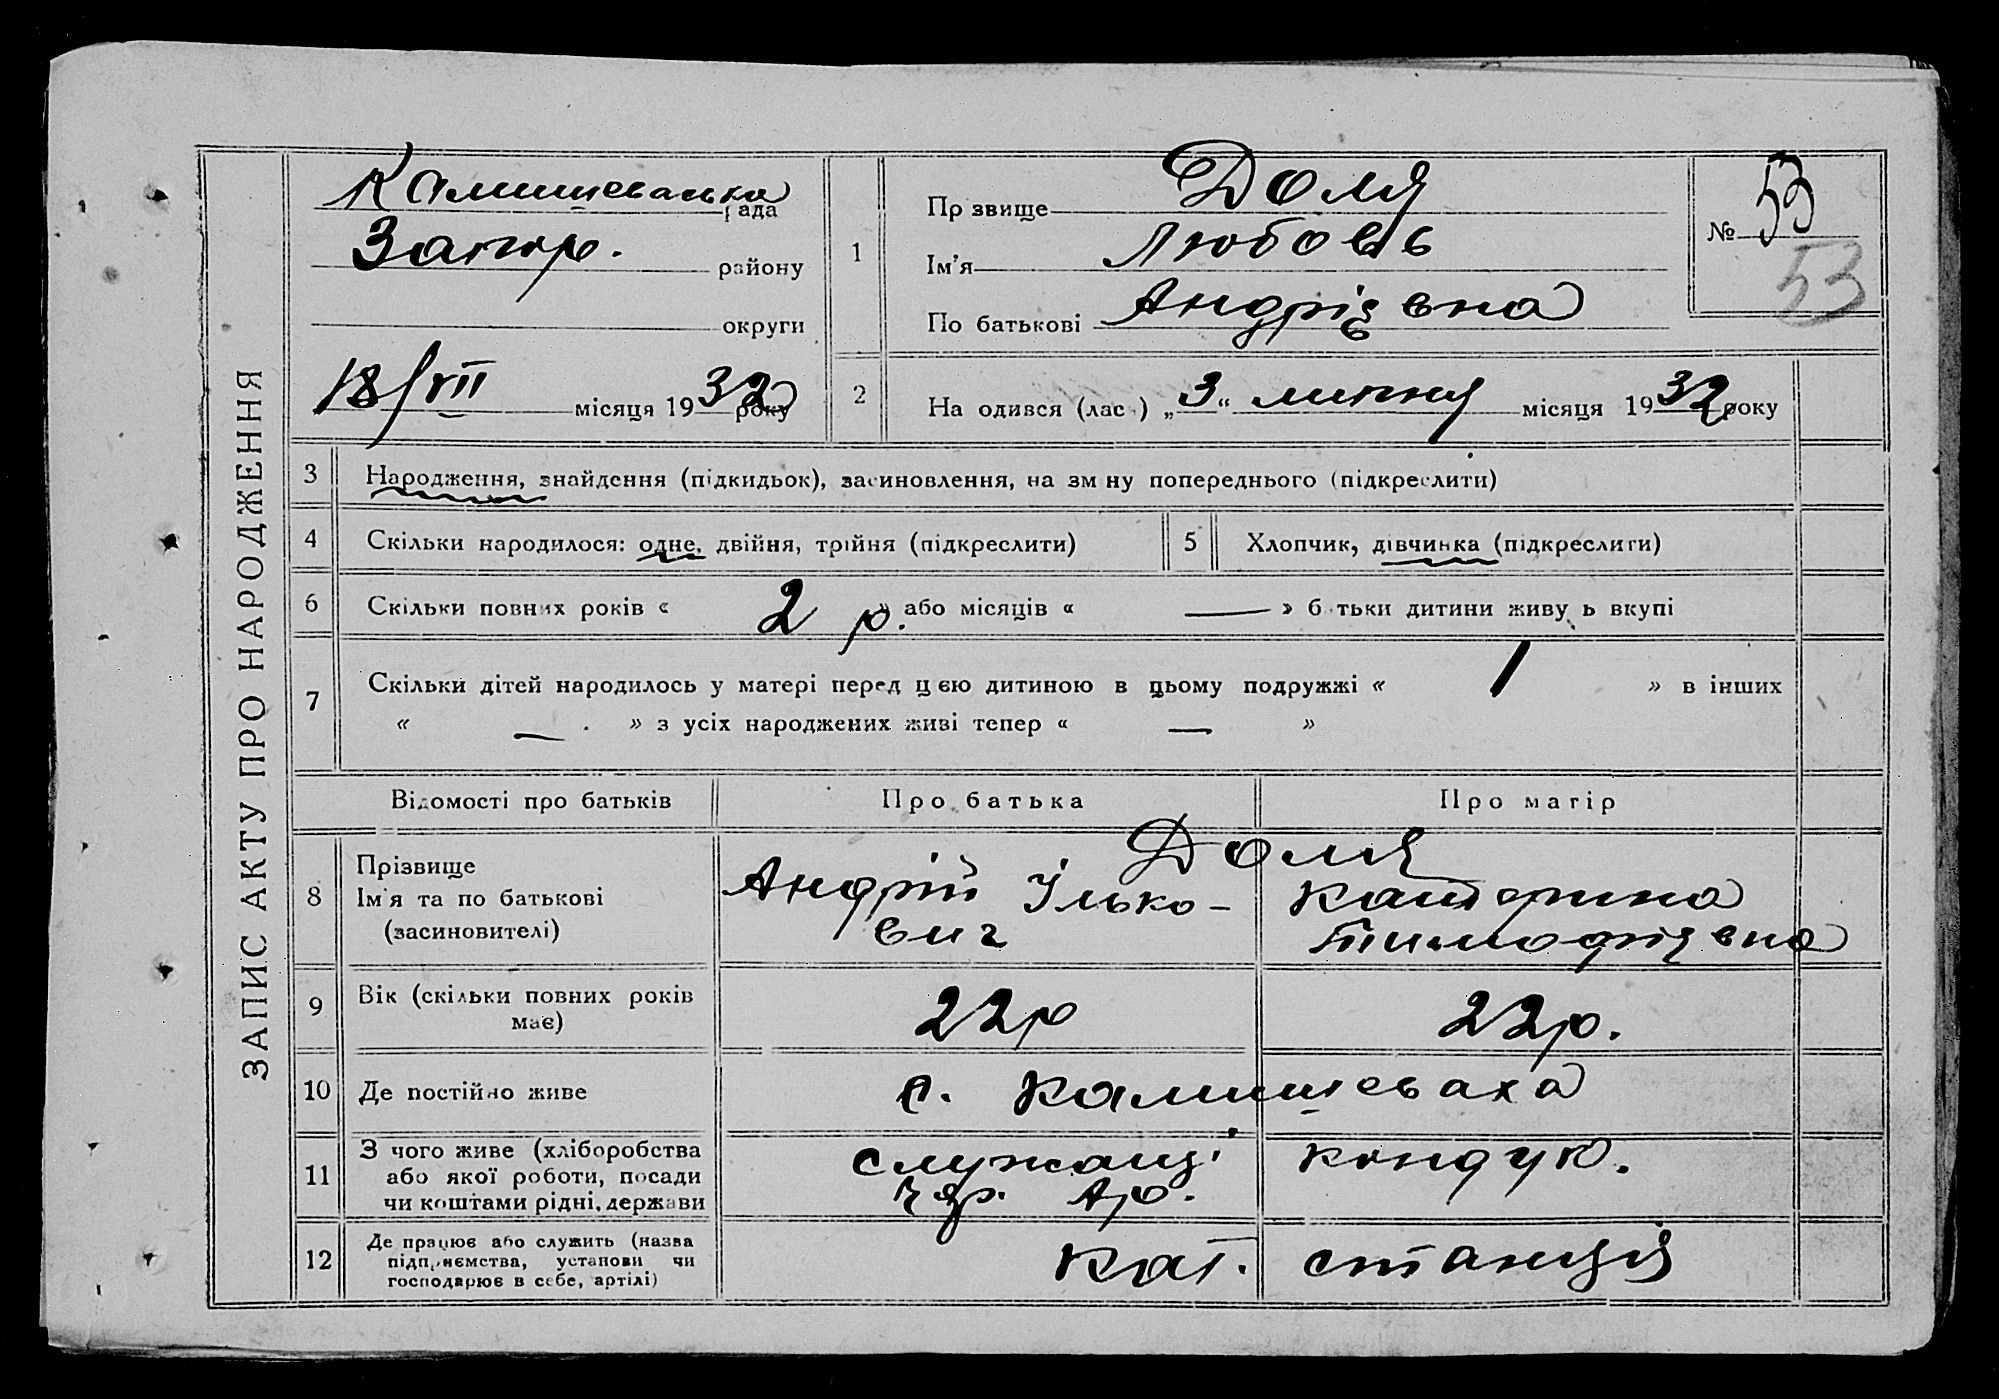 ЗАПИС АКТУ ПРО НАРОДЖЕННЯ
Камишеваська рада
Запор. району
округи
18/VII місяця 1932 року
1
Прзвище Доля
Ім'я Любовь
По батькові Андріївна
№ 53
53
2
Наодився (лас) „3“ липня місяця 1932 року
3 Народження, знайдення (підкидьок), засиновлення, на змну попереднього (підкреслити)
4 Скільки народилося: одне, двійня, трійня (підкреслити)
5 Хлопчик, дівчинка (підкреслити)
6 Скільки повних років « 2 р. » або місяців « — » бтьки дитини живуь вкупі
7 Скільки дітей народилось у матері перед цею дитиною в цьому подружжі « 1 » в інших
« — » з усіх народжених живі тепер « — »
Відомості про батьків Про батька Про матір
8 Прізвище
Ім'я та по батькові
(засиновителі)
Доля
Андрій Ілько-
вич
Катерина
Тимофіївна
9 Вік (скільки повних років
має)
22р 22р.
10 Де постійно живе с. Камишеваха
11 З чого живе (хліборобства
або якої роботи, посади
чи коштами рідні, держави
служащі кондук.
12 Де працює або служить (назва
підприємства, установи чи
господарює в себе, артілі)
станція